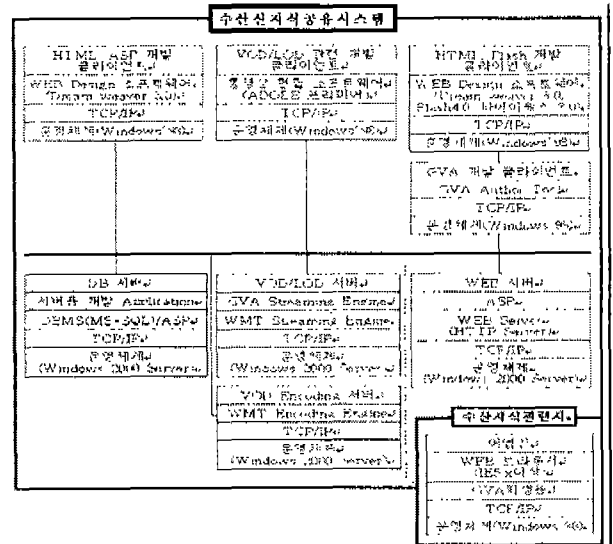 수산신지식공유시스템
HTML ASP 개발
클라이언트
WEB Design 소프트웨어
TCP/IP
운영체제(Windows 98)
VOD/LOD 관련 개발
클라이언트
동영상 편집 소프트웨어
TCP/IP
운영체제(Windows 98)
HTML Flash 개발
클라이언트
WEB Design 소프트웨어
TCP/IP
운영체제(Windows 98)
GVA 개발 클라이언트
GVA Author Tools
TCP/IP
운영체제(Windows 98)
DB 서버
서버용 개발 Application
DBMS(MS-SQL)/ASP
TCP/IP
운영체제
(Windows 2000 Server)
VOD/LOD 서버
GVA Streaming Engine
WMT Streaming Engine
TCP/IP
운영체제
(Windows 2000 Server)
VOD Encoding 서버
WMT Encoding Engine
TCP/IP
운영체제
(Windows 2000 Server)
WEB 서버
ASP
WEB Server
(HTTP Server)
TCP/IP
운영체제
(Windows 2000 Server)
수산지식관련자
WEB 브라우저
TCP/IP
운영체제(Windows 98)